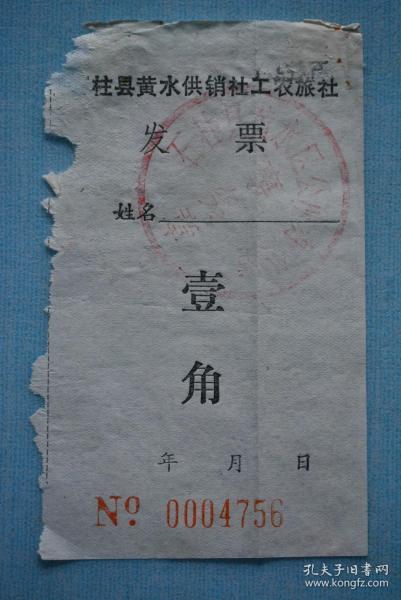 柱县黄水供销社工农旅社
发 票
姓名
壹
角
年 月 日
Nº 0004756
孔夫子旧书网
www.kongfz.com